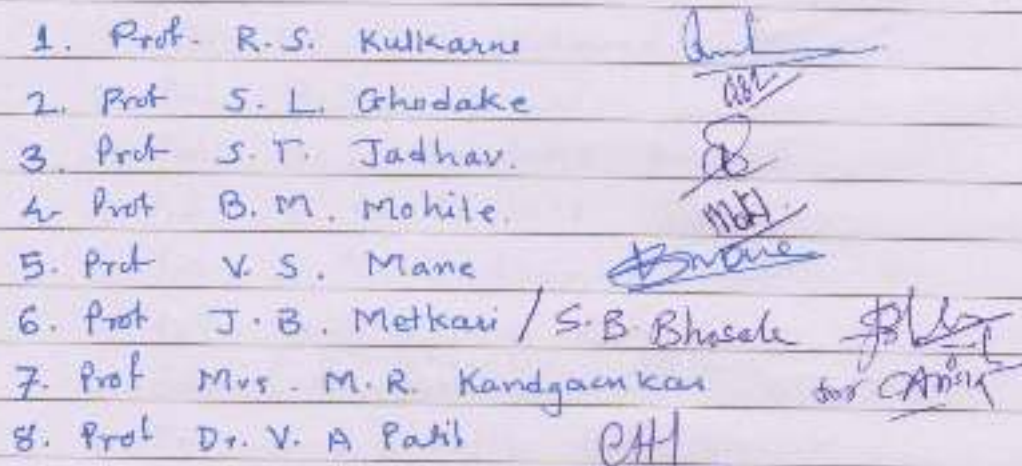 1. Prof. R.S. Kulkarni
2. Prof S. L. Ghodake
3. Prof S. T. Jadhav.
4 Prof B. M. Mohite.
5. Prof V. S. Mane
6. Prof J. B. Metkari / S. B. Bhosale
7. Prof Mrs. M. R. Kandgaonkar for
8. Prof Dr. V. A Patil